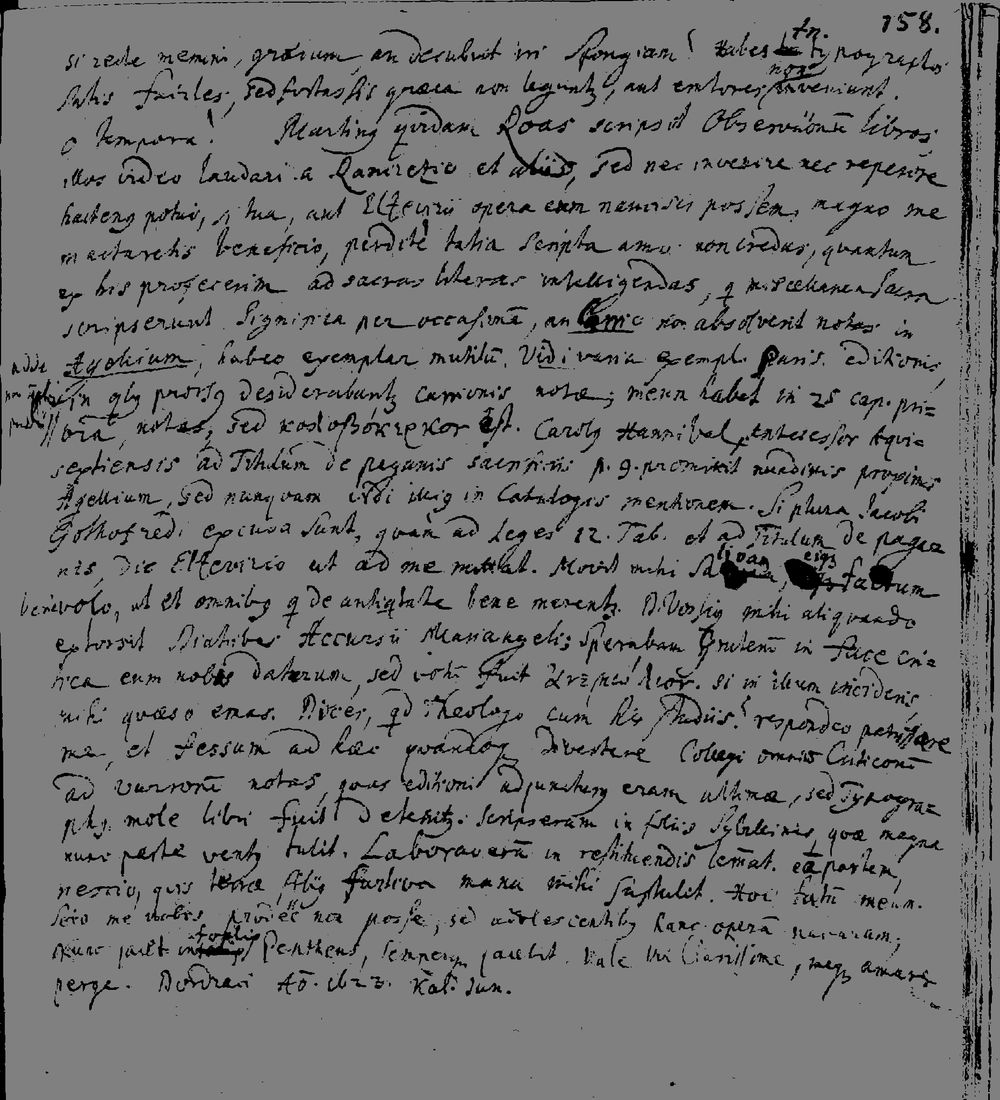 158.
si recte memini, graecum, an decubuit in Spongiam? Habes tn. typographos
satis faciles, sed fortassis graeca non leguntʒ, aut emtores non inveniunt.
o tempora! Martinʒ quidam Roas scripsit Observationũ libros,
illos video laudari a Ramirezio et aliis, sed nec invenire nec reperire
hactenʒ potui, si tua, aut Elzevirii opera eum nancisci possem, magno me
mactaretis beneficio, perditè talia scripta amo. non credas, quantum
ex his profecerim ad sacras literas intelligendas, q miscellanea sacra
scripserunt. Significa per occasionẽ, an non absolverit notas in
Agellium, habeo exemplar mutilũ. Vidi varia exempl. Paris. editionis,
adde
in qbʒ prorsʒ desiderabantʒ notae; meum habet in 25 cap. pri-
notas, sed est. Carolʒ Hannibal, antecessor Aqui-
septiensis ad Titulum de paganis sacrificiis p. 9. promittit nundinis proximis
Agellium, sed nunquam vidi illiʒ in Catalogis mentionem. Si plura Jacobi
Gothofredi excusa sunt, quàm ad Leges 12. Tab. et ad Titulum de paga-
nis, dic Elzevirio ut ad me mittat. Movit mihi livam ejʒ factum
benevolo, ut et omnibʒ q de antiqtate bene merentʒ. D. Vossiʒ mihi aliquando
extorsit Diatribas Accursii Mariangeli; Sperabam Gruterũ in face cri-
tica eum nobis daturum, sed fuit. si in illum incideris,
mihi quaeso emas. Dices, qd Theologo cum his studiis? respondeo
me, et fessum ad haec quandoqʒ divertere. Collegi omnis Criticorũ
ad Varronẽ notas, quas editioni adjuncturʒ eram ultimae, sed Typogra-
phʒ mole libri fuit deterritʒ. Scripseram in foliis Sybillinis, quae magna
nunc parte ventʒ tulit. Laboraverã in restituendis lemat. eã partem,
nescio, quis furtiva manu mihi sustulit. Hoc fatũ meum.
Scio me nobis non posse, sed adolescentibʒ hanc operã navaram;
Nunc jacet Pentheus, semperqʒ jacebit. Vale Vir Clarissime, meqʒ amare
perge. Dordraci Aõ. 1623. Kal. Jun.